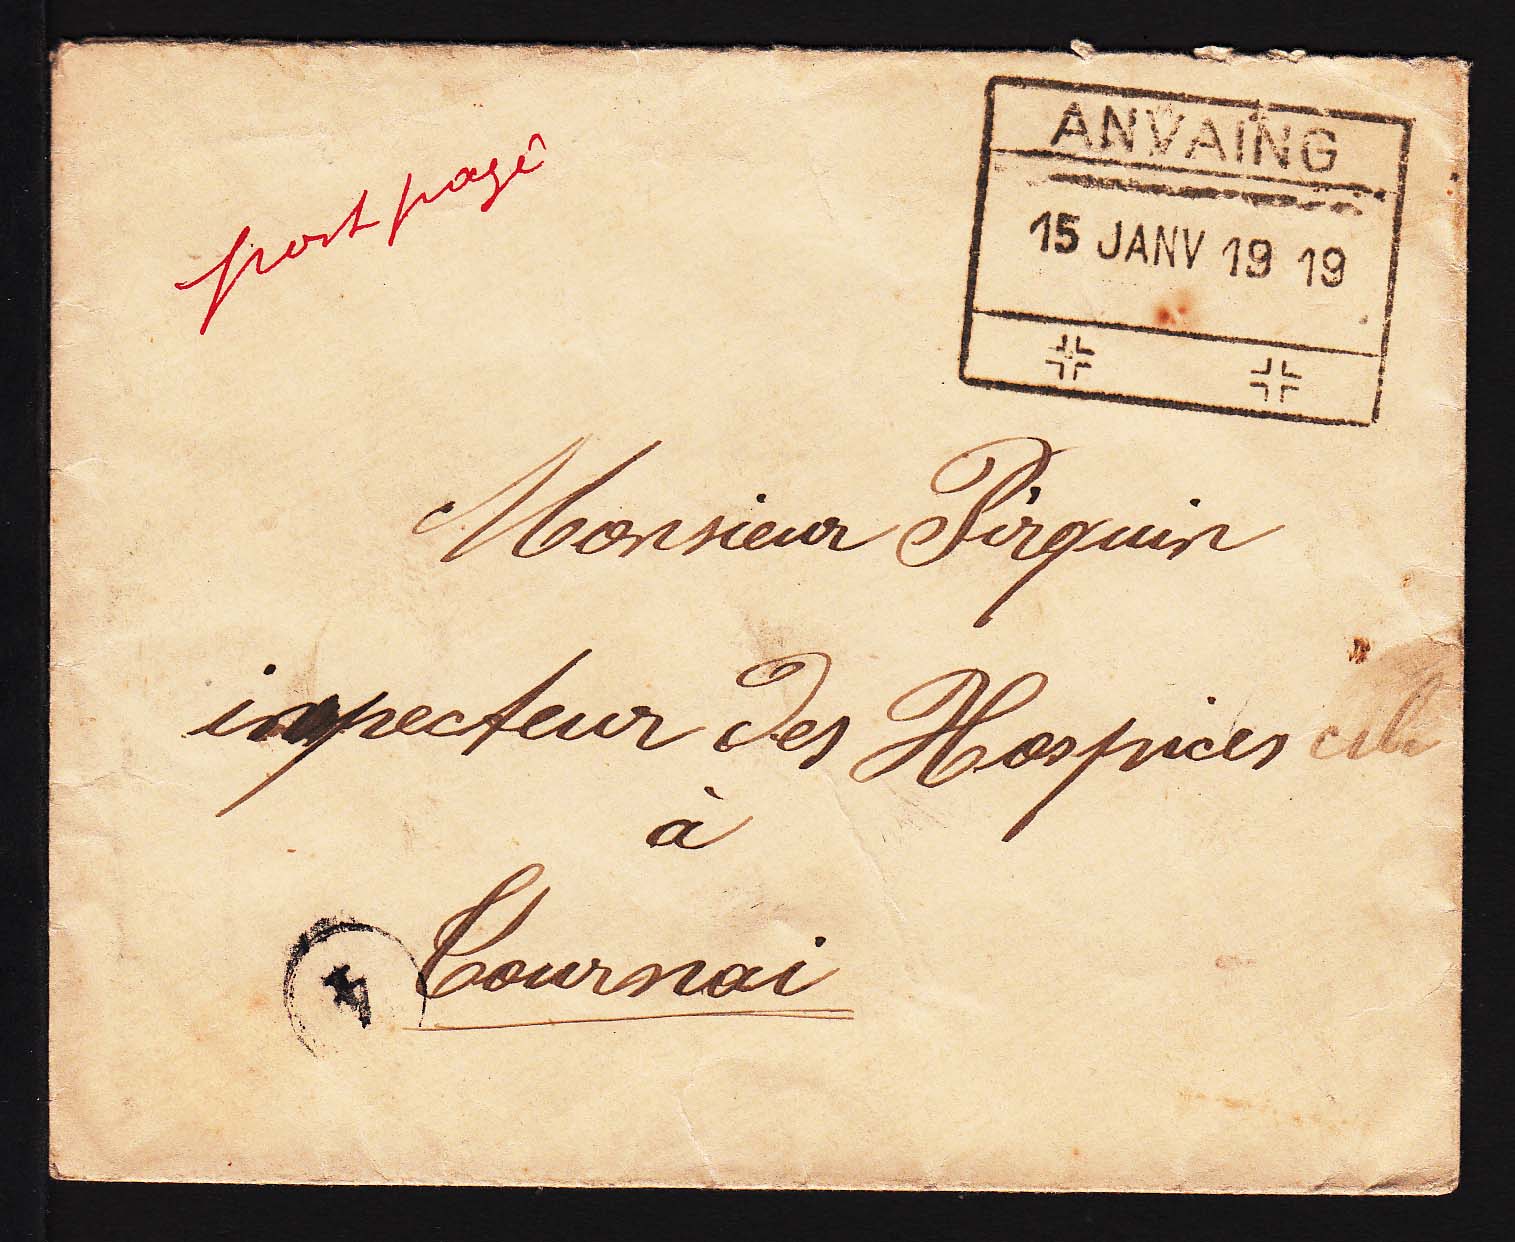 port payé
ANVAING
15 JANV 19 19
Monsieur Pirquin
inspecteur des Hospices
à
Tournai
4